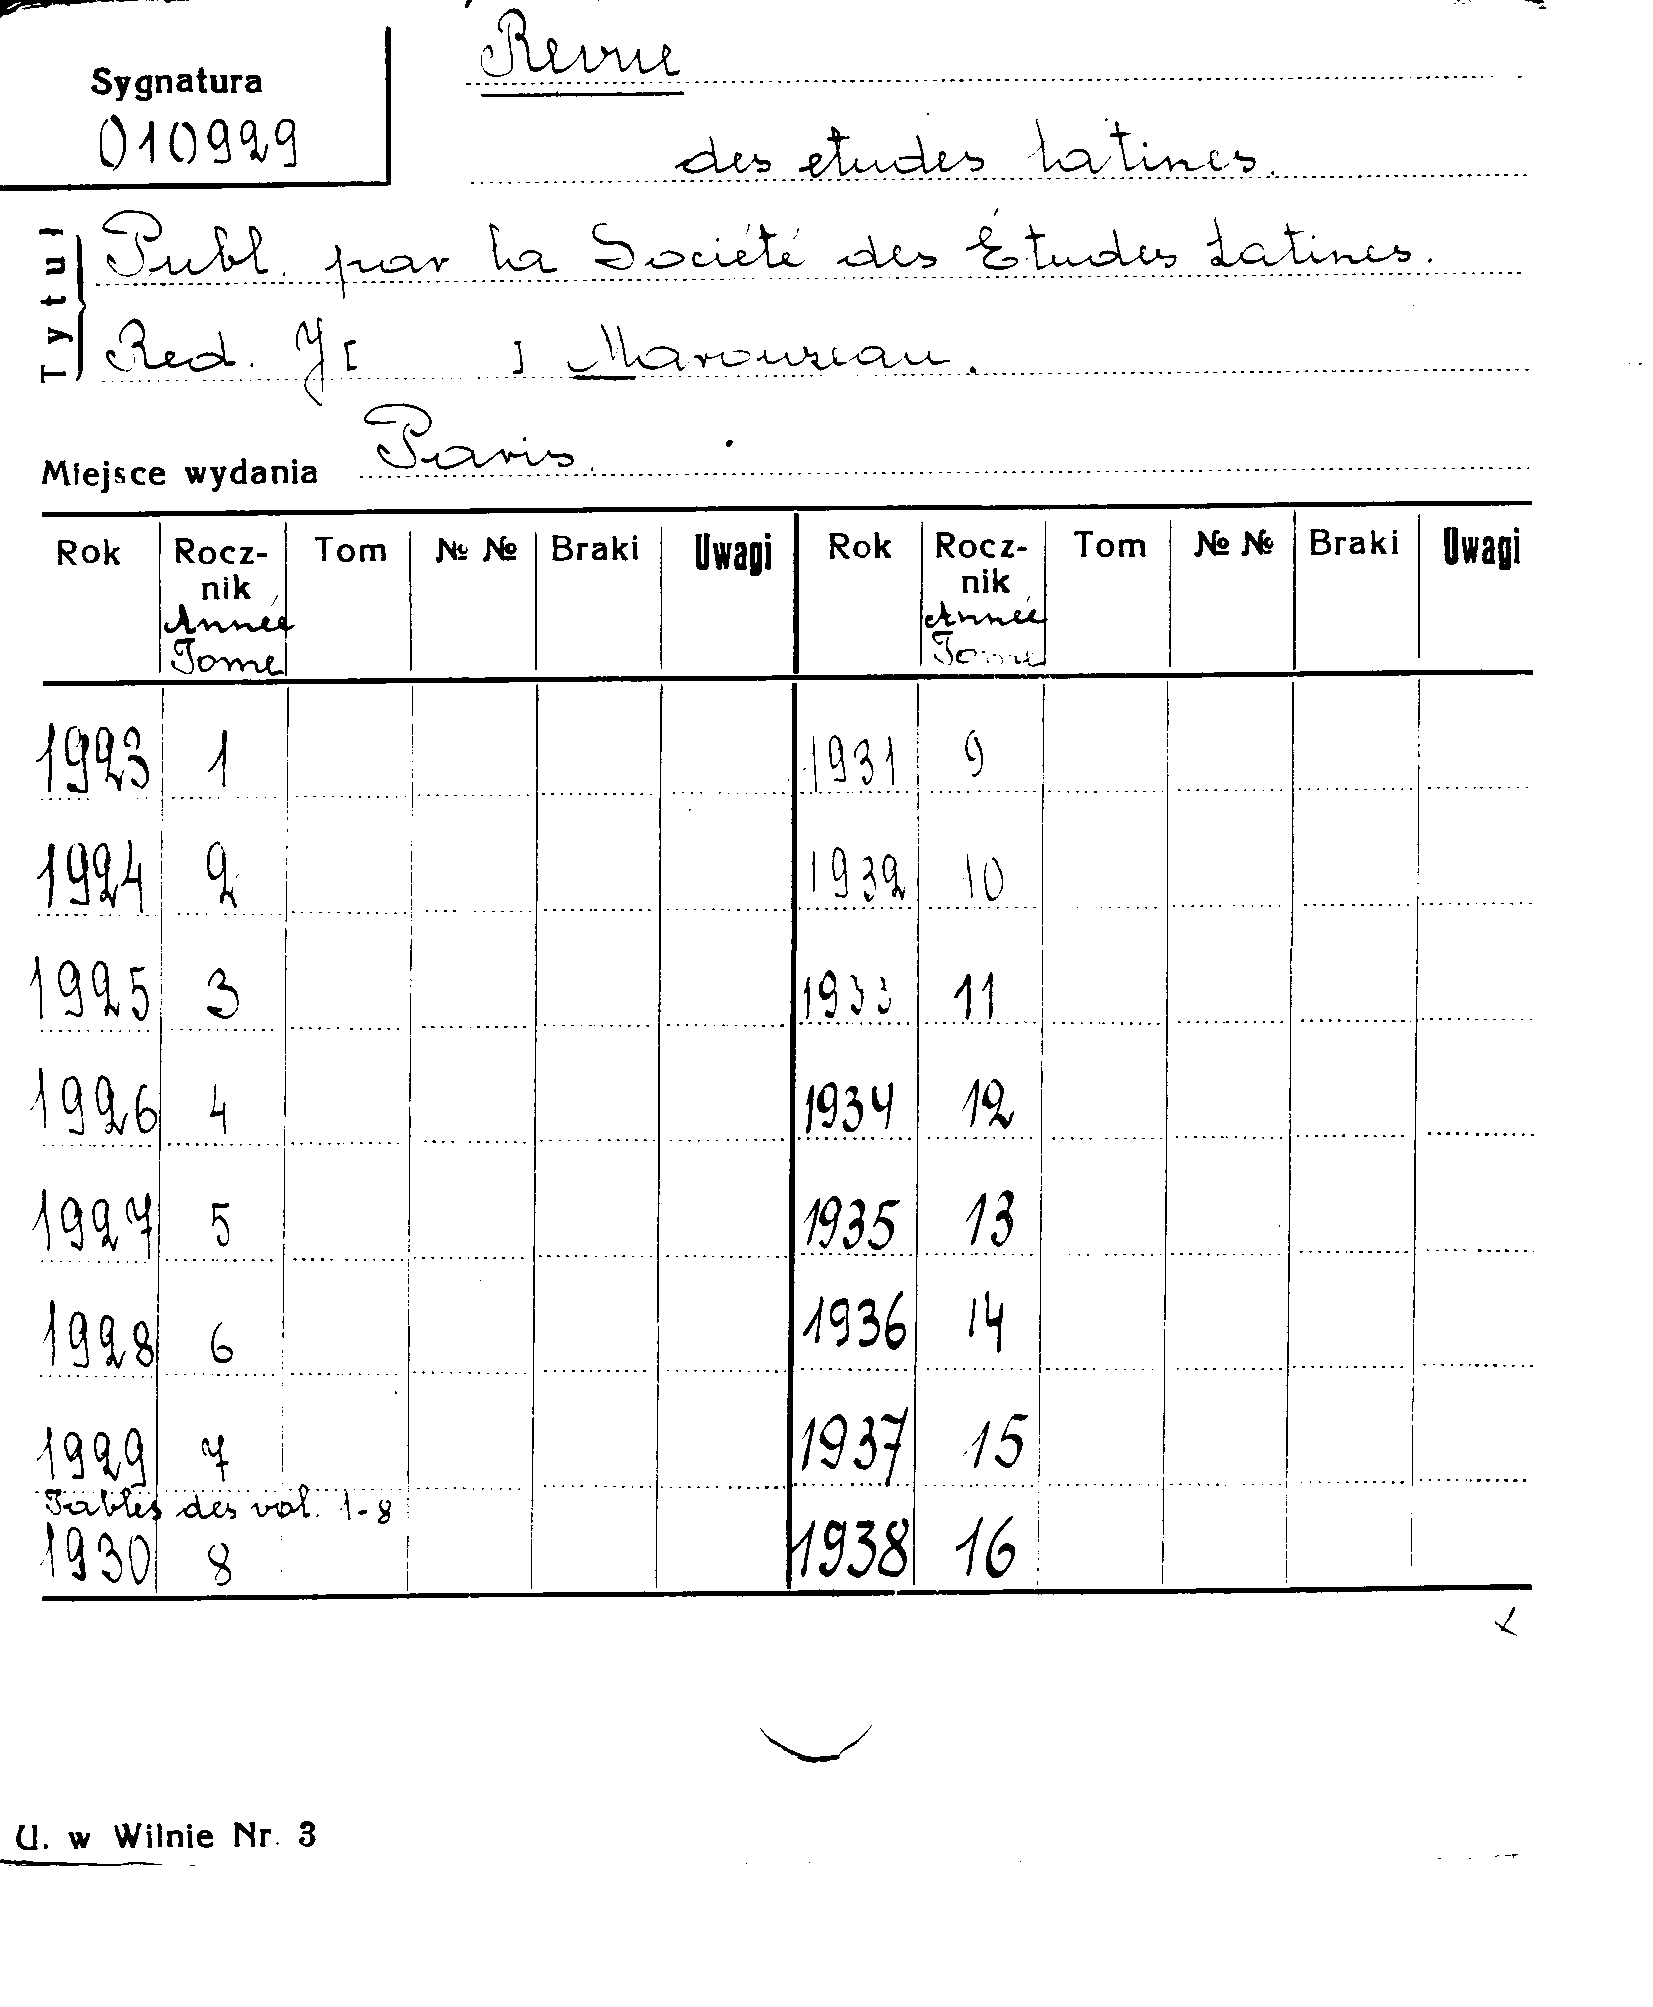 Revue
Sygnatura
010929
des etudes latines.
Tytuł
Publ. par la Société des Études Latines.
Red. J[ ] Marouzeau.
Miejsce wydania Paris.
Rok Rocz- Tom № № Braki Uwagi Rok Rocz- Tom № № Braki Uwagi
nik nik
Année Année
Tome Tome
1923 1 1931 9
1924 2 1932 10
1925 3 1933 11
1926 4 1934 12
1927 5 1935 13
1928 6 1936 14
1929 7 1937 15
Tables des vol. 1-8
1930 8 1938 16
U. w Wilnie Nr. 3